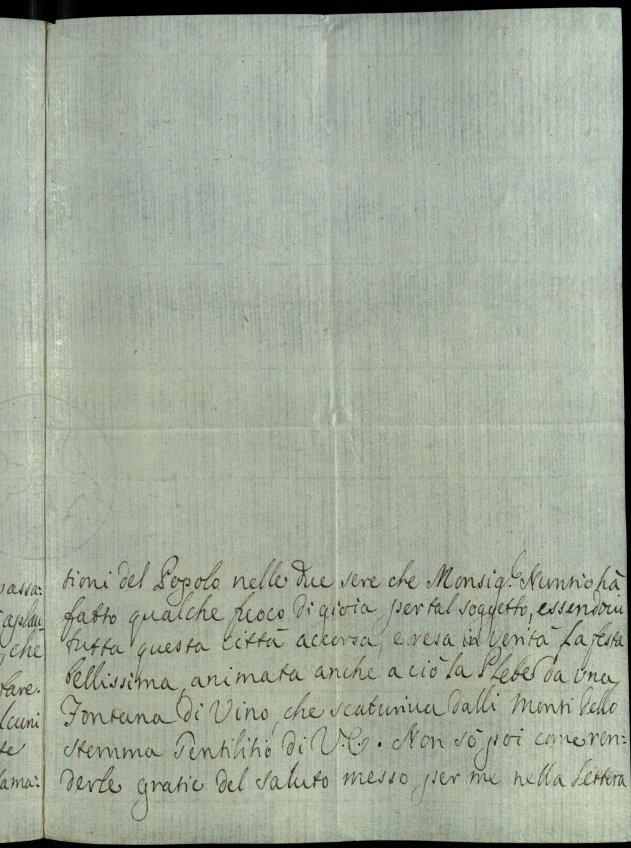 passa:
aplau
che
fare.
lcuni
te
lama:
tioni del Popolo nelle due sere che Monsig.r Nuntio hà
fatto qualche fuoco di gioia per tal soggetto, essendoui
tutta questa Città accorsa, e resa in verità la festa
bellissima, animata anche a ciò la Plebe da una
Fontana di Vino, che scaturiua dalli Monti dello
stemma Gentilitio di V.E. Non sò poi come ren:
derle gratie del saluto messo per me nella lettera